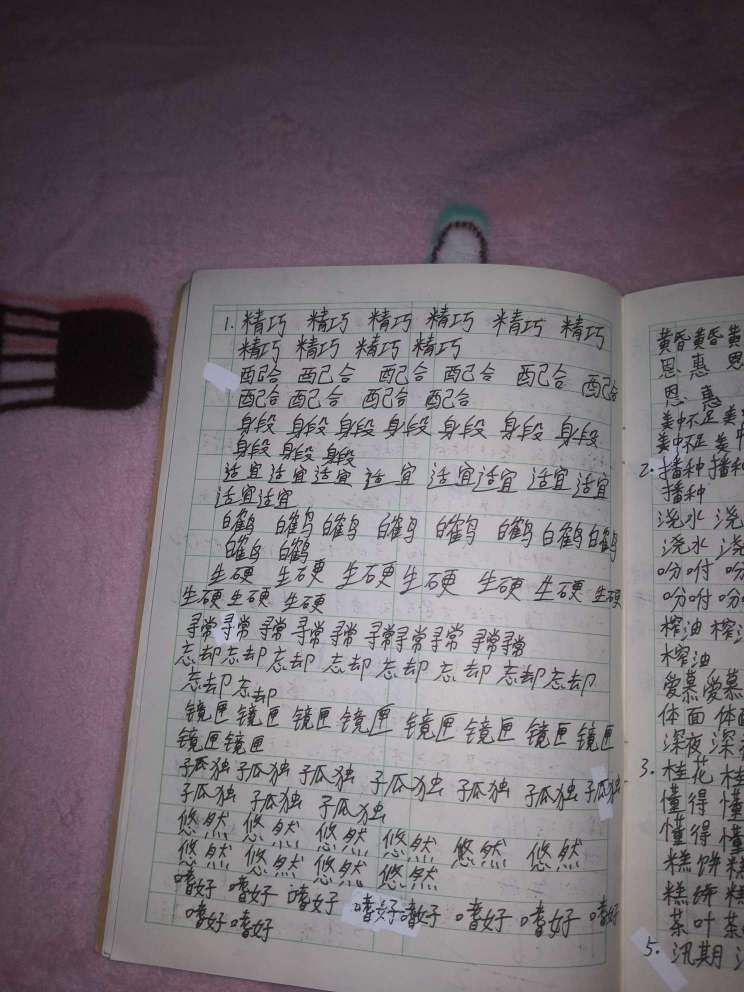 1. 精巧 精巧 精巧 精巧 精巧 精巧
精巧 精巧 精巧 精巧
配合 配合 配合 配合 配合 配合
配合 配合 配合 配合
身段 身段 身段 身段 身段 身段 身段
身段 身段 身段
适宜 适宜 适宜 适宜 适宜 适宜 适宜 适宜
适宜 适宜
白鹤 白鹤 白鹤 白鹤 白鹤 白鹤 白鹤 白鹤
白鹤 白鹤
生硬 生硬 生硬 生硬 生硬 生硬 生硬
生硬 生硬 生硬
寻常 寻常 寻常 寻常 寻常 寻常 寻常 寻常 寻常 寻常
忘却 忘却 忘却 忘却 忘却 忘却 忘却 忘却
忘却 忘却
镜匣 镜匣 镜匣 镜匣 镜匣 镜匣 镜匣 镜匣
镜匣 镜匣
孤独 孤独 孤独 孤独 孤独 孤独 孤独
孤独 孤独 孤独
悠然 悠然 悠然 悠然 悠然 悠然
悠然 悠然 悠然 悠然
嗜好 嗜好 嗜好 嗜好 嗜好 嗜好 嗜好 嗜好
嗜好 嗜好
黄昏 黄昏 黄
恩惠 恩
恩惠
美中不足 美
美中不足 美中
2. 播种 播种
播种
浇水 浇
浇水 浇
吩咐 吩
吩咐 吩
榨油 榨油
榨油
爱慕 爱慕
体面 体面
深夜 深夜
3. 桂花 桂
懂得 懂
懂得 懂
糕饼 糕
糕饼 糕
茶叶 茶
5. 汛期